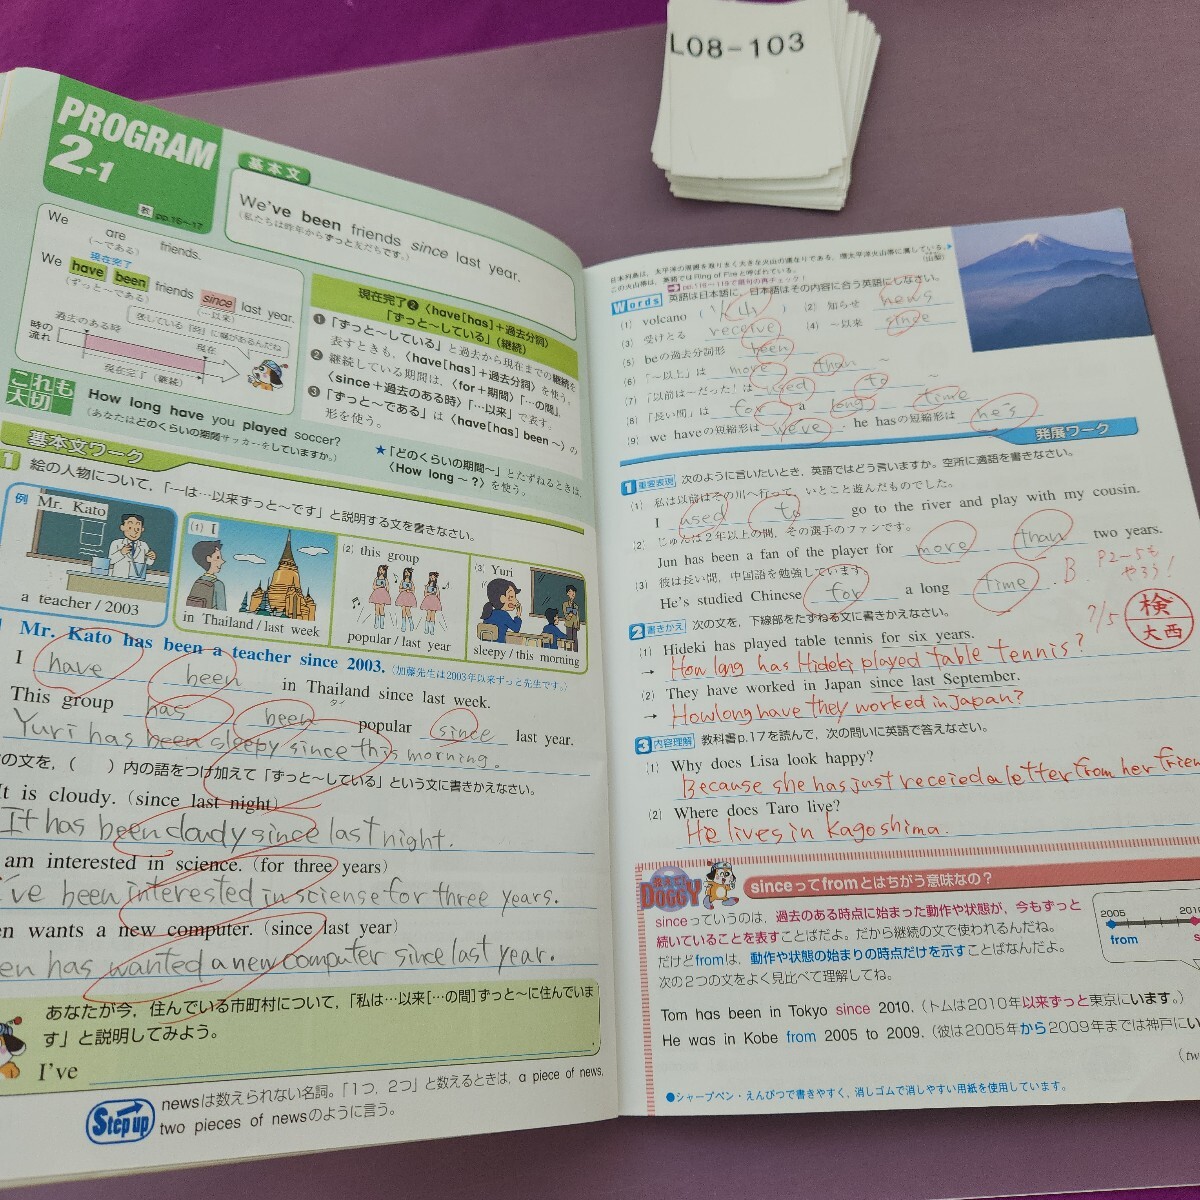 L08-103
PROGRAM
2-1
教 pp.16～17
基本文
We've been friends since last year.
（私たちは昨年からずっと友だちです。）
We are friends.
（～である）
現在完了
We have been friends since last year.
（ずっと～である）
（～以来）
過去のある時
時の流れ
現在
現在完了（継続）
現在完了❷〈have[has]＋過去分詞〉
「ずっと～している」（継続）
❶「ずっと～している」と過去から現在までの継続を
表すときも，〈have[has]＋過去分詞〉を使う。
❷ 継続している期間は，〈for＋期間〉「…の間」，
〈since＋過去のある時〉「…以来」で表す。
❸「ずっと～である」は〈have[has] been ～〉の
形を使う。
これも大切
How long have you played soccer?
（あなたはどのくらいの期間サッカーをしていますか。）
★「どのくらいの期間～」とたずねるときは，
〈How long ～?〉を使う。
基本文ワーク
1 絵の人物について，「―は…以来ずっと～です」と説明する文を書きなさい。
例 Mr. Kato
a teacher / 2003
(1) I
in Thailand / last week
(2) this group
popular / last year
(3) Yuri
sleepy / this morning
Mr. Kato has been a teacher since 2003.（加藤先生は2003年以来ずっと先生です。）
I have been in Thailand since last week.
タイ
This group has been popular since last year.
Yuri has been sleepy since this morning.
の文を，（　）内の語をつけ加えて「ずっと～している」という文に書きかえなさい。
It is cloudy.（since last night）
It has been cloudy since last night.
am interested in science.（for three years）
I've been interested in sciense for three years.
en wants a new computer.（since last year）
en has wanted a new computer since last year.
あなたが今，住んでいる市町村について，「私は…以来[…の間]ずっと～に住んでいま
す」と説明してみよう。
I've
Step up
newsは数えられない名詞。「1つ，2つ」と数えるときは，a piece of news,
two pieces of newsのように言う。
日本列島は，太平洋の周囲を取りまく大きな火山の連なりである，環太平洋火山帯に属している。
この火山帯は，英語ではRing of Fireと呼ばれている。
（山梨）
pp.116～119で語句の再チェック！
Words 英語は日本語に，日本語はその内容に合う英語にしなさい。
(1) volcano（火山）
(2) 知らせ news
(3) 受けとる receive
(4) ～以来 since
(5) beの過去分詞形 been
(6) 「～以上」は more than ～
(7) 「以前は～だった」は used to ～
(8) 「長い間」は for a long time
(9) we haveの短縮形は we've，he hasの短縮形は he's
発展ワーク
1 重要表現 次のように言いたいとき，英語ではどう言いますか。空所に適語を書きなさい。
(1) 私は以前はその川へ行って，いとこと遊んだものでした。
I used to go to the river and play with my cousin.
(2) じゅんは2年以上の間，その選手のファンです。
Jun has been a fan of the player for more than two years.
(3) 彼は長い間，中国語を勉強しています。
He's studied Chinese for a long time.
B
P2～5も
やろう！
7/5
検
大西
2 書きかえ 次の文を，下線部をたずねる文に書きかえなさい。
(1) Hideki has played table tennis for six years.
→ How long has Hideki played table tennis?
(2) They have worked in Japan since last September.
→ How long have they worked in Japan?
3 内容理解 教科書p.17を読んで，次の問いに英語で答えなさい。
(1) Why does Lisa look happy?
Because she has just receied a letter from her frien
(2) Where does Taro live?
He lives in Kagoshima.
教えて！
DOGGY
sinceってfromとはちがう意味なの？
sinceっていうのは，過去のある時点に始まった動作や状態が，今もずっと
続いていることを表すことばだよ。だから継続の文で使われるんだね。
だけどfromは，動作や状態の始まりの時点だけを示すことばなんだよ。
次の2つの文をよく見比べて理解してね。
2005
from
Tom has been in Tokyo since 2010.（トムは2010年以来ずっと東京にいます。）
He was in Kobe from 2005 to 2009.（彼は2005年から2009年までは神戸にい
(tw
●シャープペン・えんぴつで書きやすく，消しゴムで消しやすい用紙を使用しています。